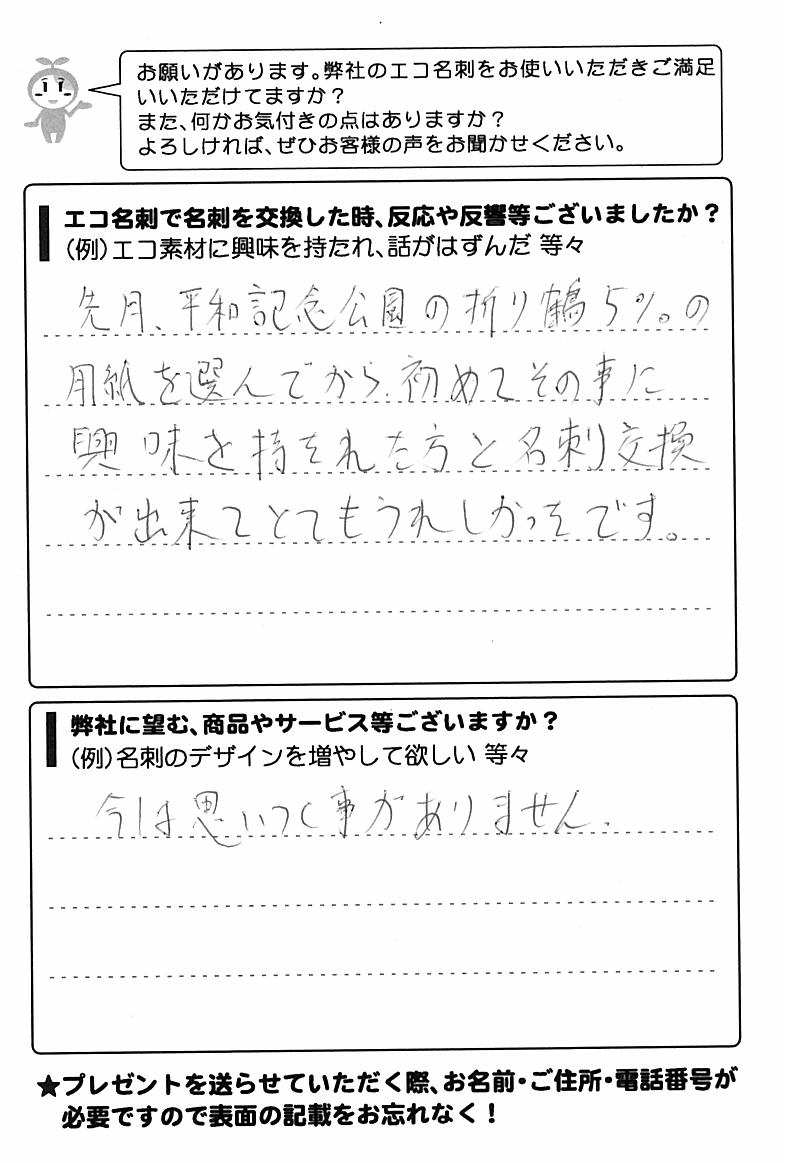 お願いがあります。弊社のエコ名刺をお使いいただきご満足
いいただけてますか?
また、何かお気付きの点はありますか?
よろしければ、ぜひお客様の声をお聞かせください。
エコ名刺で名刺を交換した時、反応や反響等ございましたか?
(例)エコ素材に興味を持たれ、話がはずんだ 等々
先月、平和記念公園の折り鶴5%の
用紙を選んでから、初めてその事に
興味を持をれた方と名刺交換
が出来てとてもうれしかったです。
弊社に望む、商品やサービス等ございますか?
(例)名刺のデザインを増やして欲しい 等々
今は思いつく事がありません。
★プレゼントを送らせていただく際、お名前・ご住所・電話番号が
必要ですので表面の記載をお忘れなく!